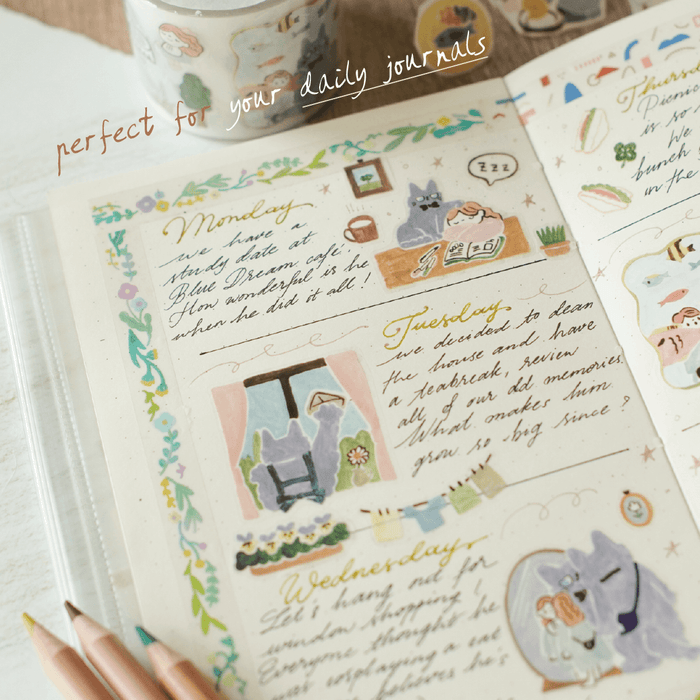 perfect for your daily journals
Monday
we have a
study date at
Blue Dream café.
How wonderful is he
when he did it all!
zzz
Tuesday
we decided to clean
the house and have
a teabreak, review
all of our old memories.
What makes him
grow so big since?
Wednesday
Let's hang out for
window shopping!
Everyone thought he
was cosplaying a cat
believes he's
Thursd
Picnic
is so
We
bunch
in the